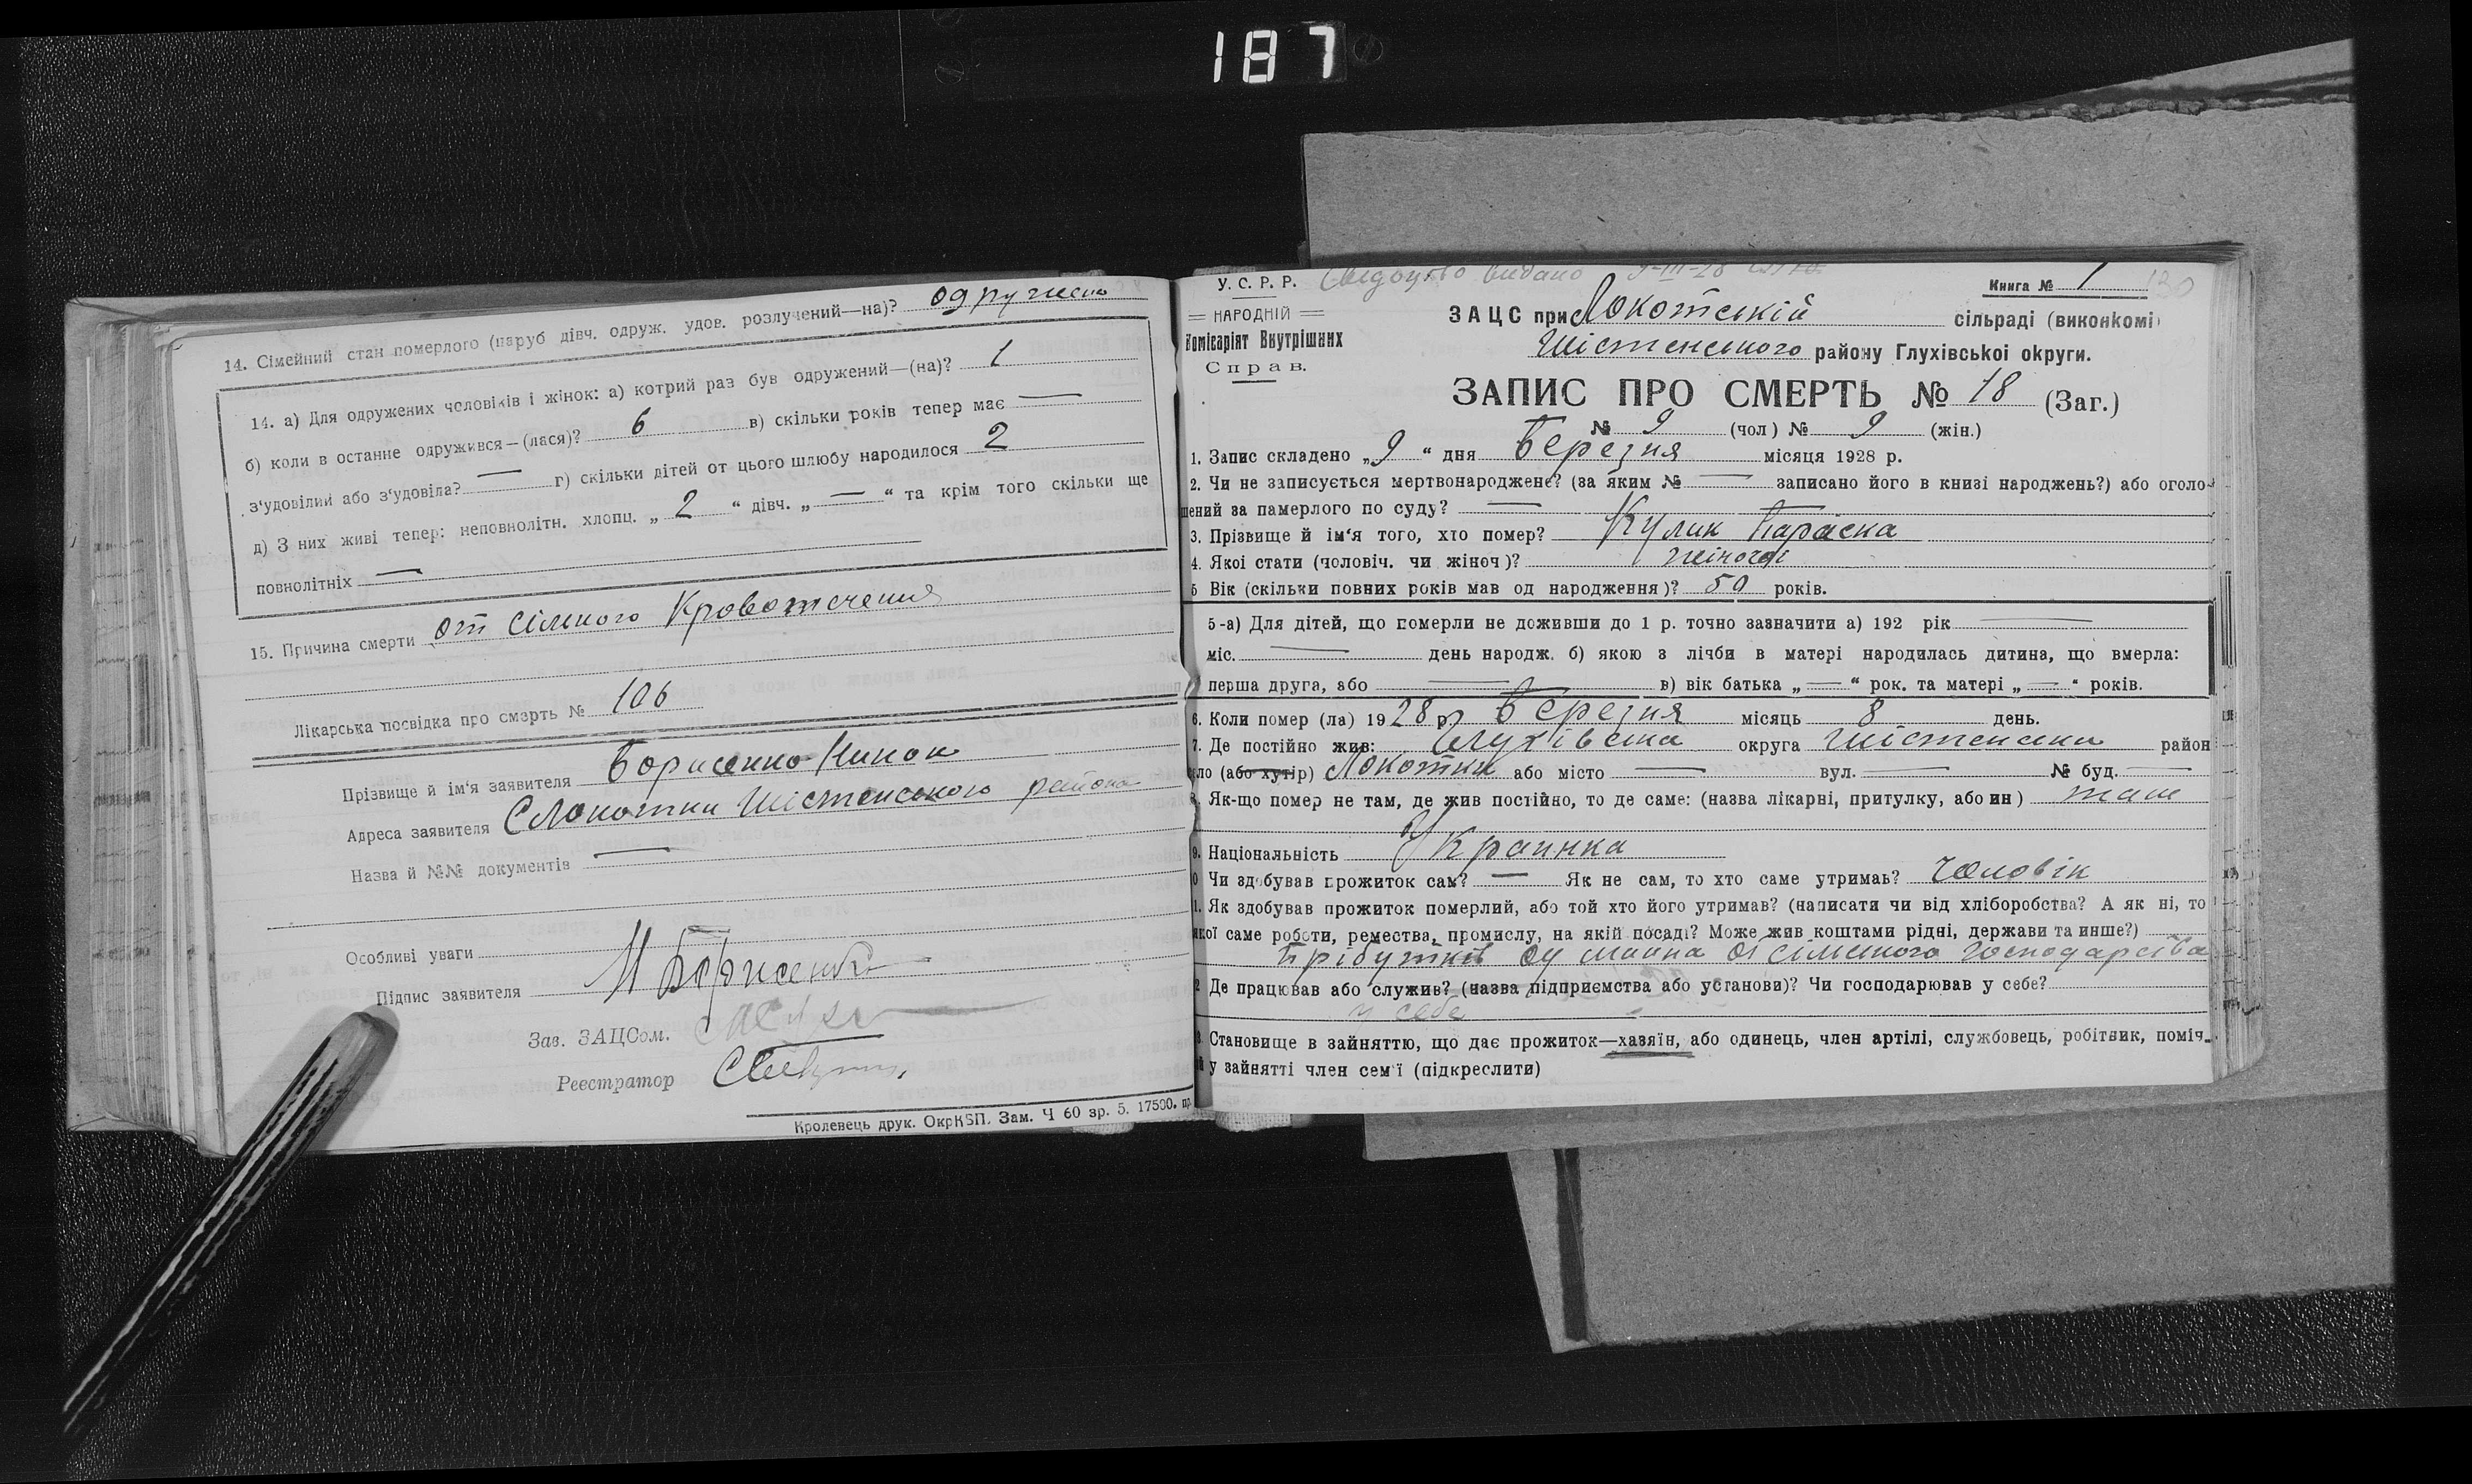 187
14. Сімейний стан померлого (паруб дівч. одруж. удов. розлучений—на)? одружена
14. а) Для одружених чоловіків і жінок: а) котрий раз був одружений—(на)? 1
б) коли в останне одружився—(лася)? 6 в) скільки років тепер має —
з‘удовілий або з‘удовіла? — г) скільки дітей от цього шлюбу народилося 2
д) З них живі тепер: неповнолітн. хлопц. „ 2 “ дівч. „ — “ та крім того скільки ще
повнолітніх —
15. Причина смерти от сільного Кровотечения
Лікарська посвідка про смерть № 106
Прізвище й ім‘я заявителя Борисенко
Адреса заявителя С Локотки Шістенського района
Назва й №№ документів —
Особливі уваги
Підпис заявителя И Борисенко
Зав. ЗАЦСом.
Реєстратор
Кролевець друк. ОкрКВП. Зам. Ч 60 зр. 5. 17500. пр
У. С. Р. Р. Свідоцтво видано 9-III-28
Книга № 1 130
НАРОДНІЙ
Комісаріят Внутрішних
Справ.
ЗАЦС при Локотській сільраді (виконкомі)
Шістенського району Глухівської округи.
ЗАПИС ПРО СМЕРТЬ № 18 (Заг.)
№ 9 (чол) № 9 (жін.)
1. Запис складено „9 “ дня Березня місяця 1928 р.
2. Чи не записується мертвонароджене? (за яким № — записано його в книзі народжень?) або оголо-
шений за памерлого по суду? —
3. Прізвище й ім‘я того, хто помер? Кулик Параска
4. Якої стати (чоловіч. чи жіноч)? жіночої
5 Вік (скільки повних років мав од народження)? 50 років.
5-а) Для дітей, що померли не доживши до 1 р. точно зазначити а) 192 рік —
міс. — день народж. б) якою з лічби в матері народилась дитина, що вмерла:
перша друга, або — в) вік батька „ — “ рок. та матері „ — “ років.
6. Коли помер (ла) 1928 р. Березня місяць 8 день.
7. Де постійно жив: Глухівська округа Шістенский район
ло (або хутір) Локотки або місто — вул. — № буд. —
Як-що помер не там, де жив постійно, то де саме: (назва лікарні, притулку, або ин) там
9. Національність Украинка
0 Чи здобував прожиток сам? — Як не сам, то хто саме утримав? Чоловік
1. Як здобував прожиток померлий, або той хто його утримав? (написати чи від хліборобства? А як ні, то
якої саме роботи, ремества, промислу, на якій посаді? Може жив коштами рідні, держави та инше?)
сільского господарства
2 Де працював або служив? (назва підприємства або установи)? Чи господарював у себе?
у себе
3 Становище в зайняттю, що дає прожиток—хазяїн, або одинець, член артілі, службовець, робітвик, поміч-
у зайнятті член сем‘ї (підкреслити)